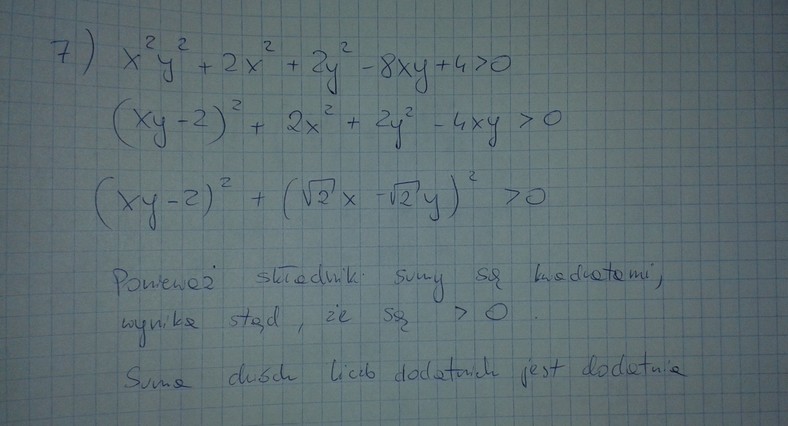 7) x²y² + 2x² + 2y² - 8xy + 4 > 0
(xy - 2)² + 2x² + 2y² - 4xy > 0
(xy - 2)² + (√2 x - √2 y)² > 0
Ponieważ składniki sumy są kwadratami,
wynika stąd, że są > 0.
Suma dwóch liczb dodatnich jest dodatnia